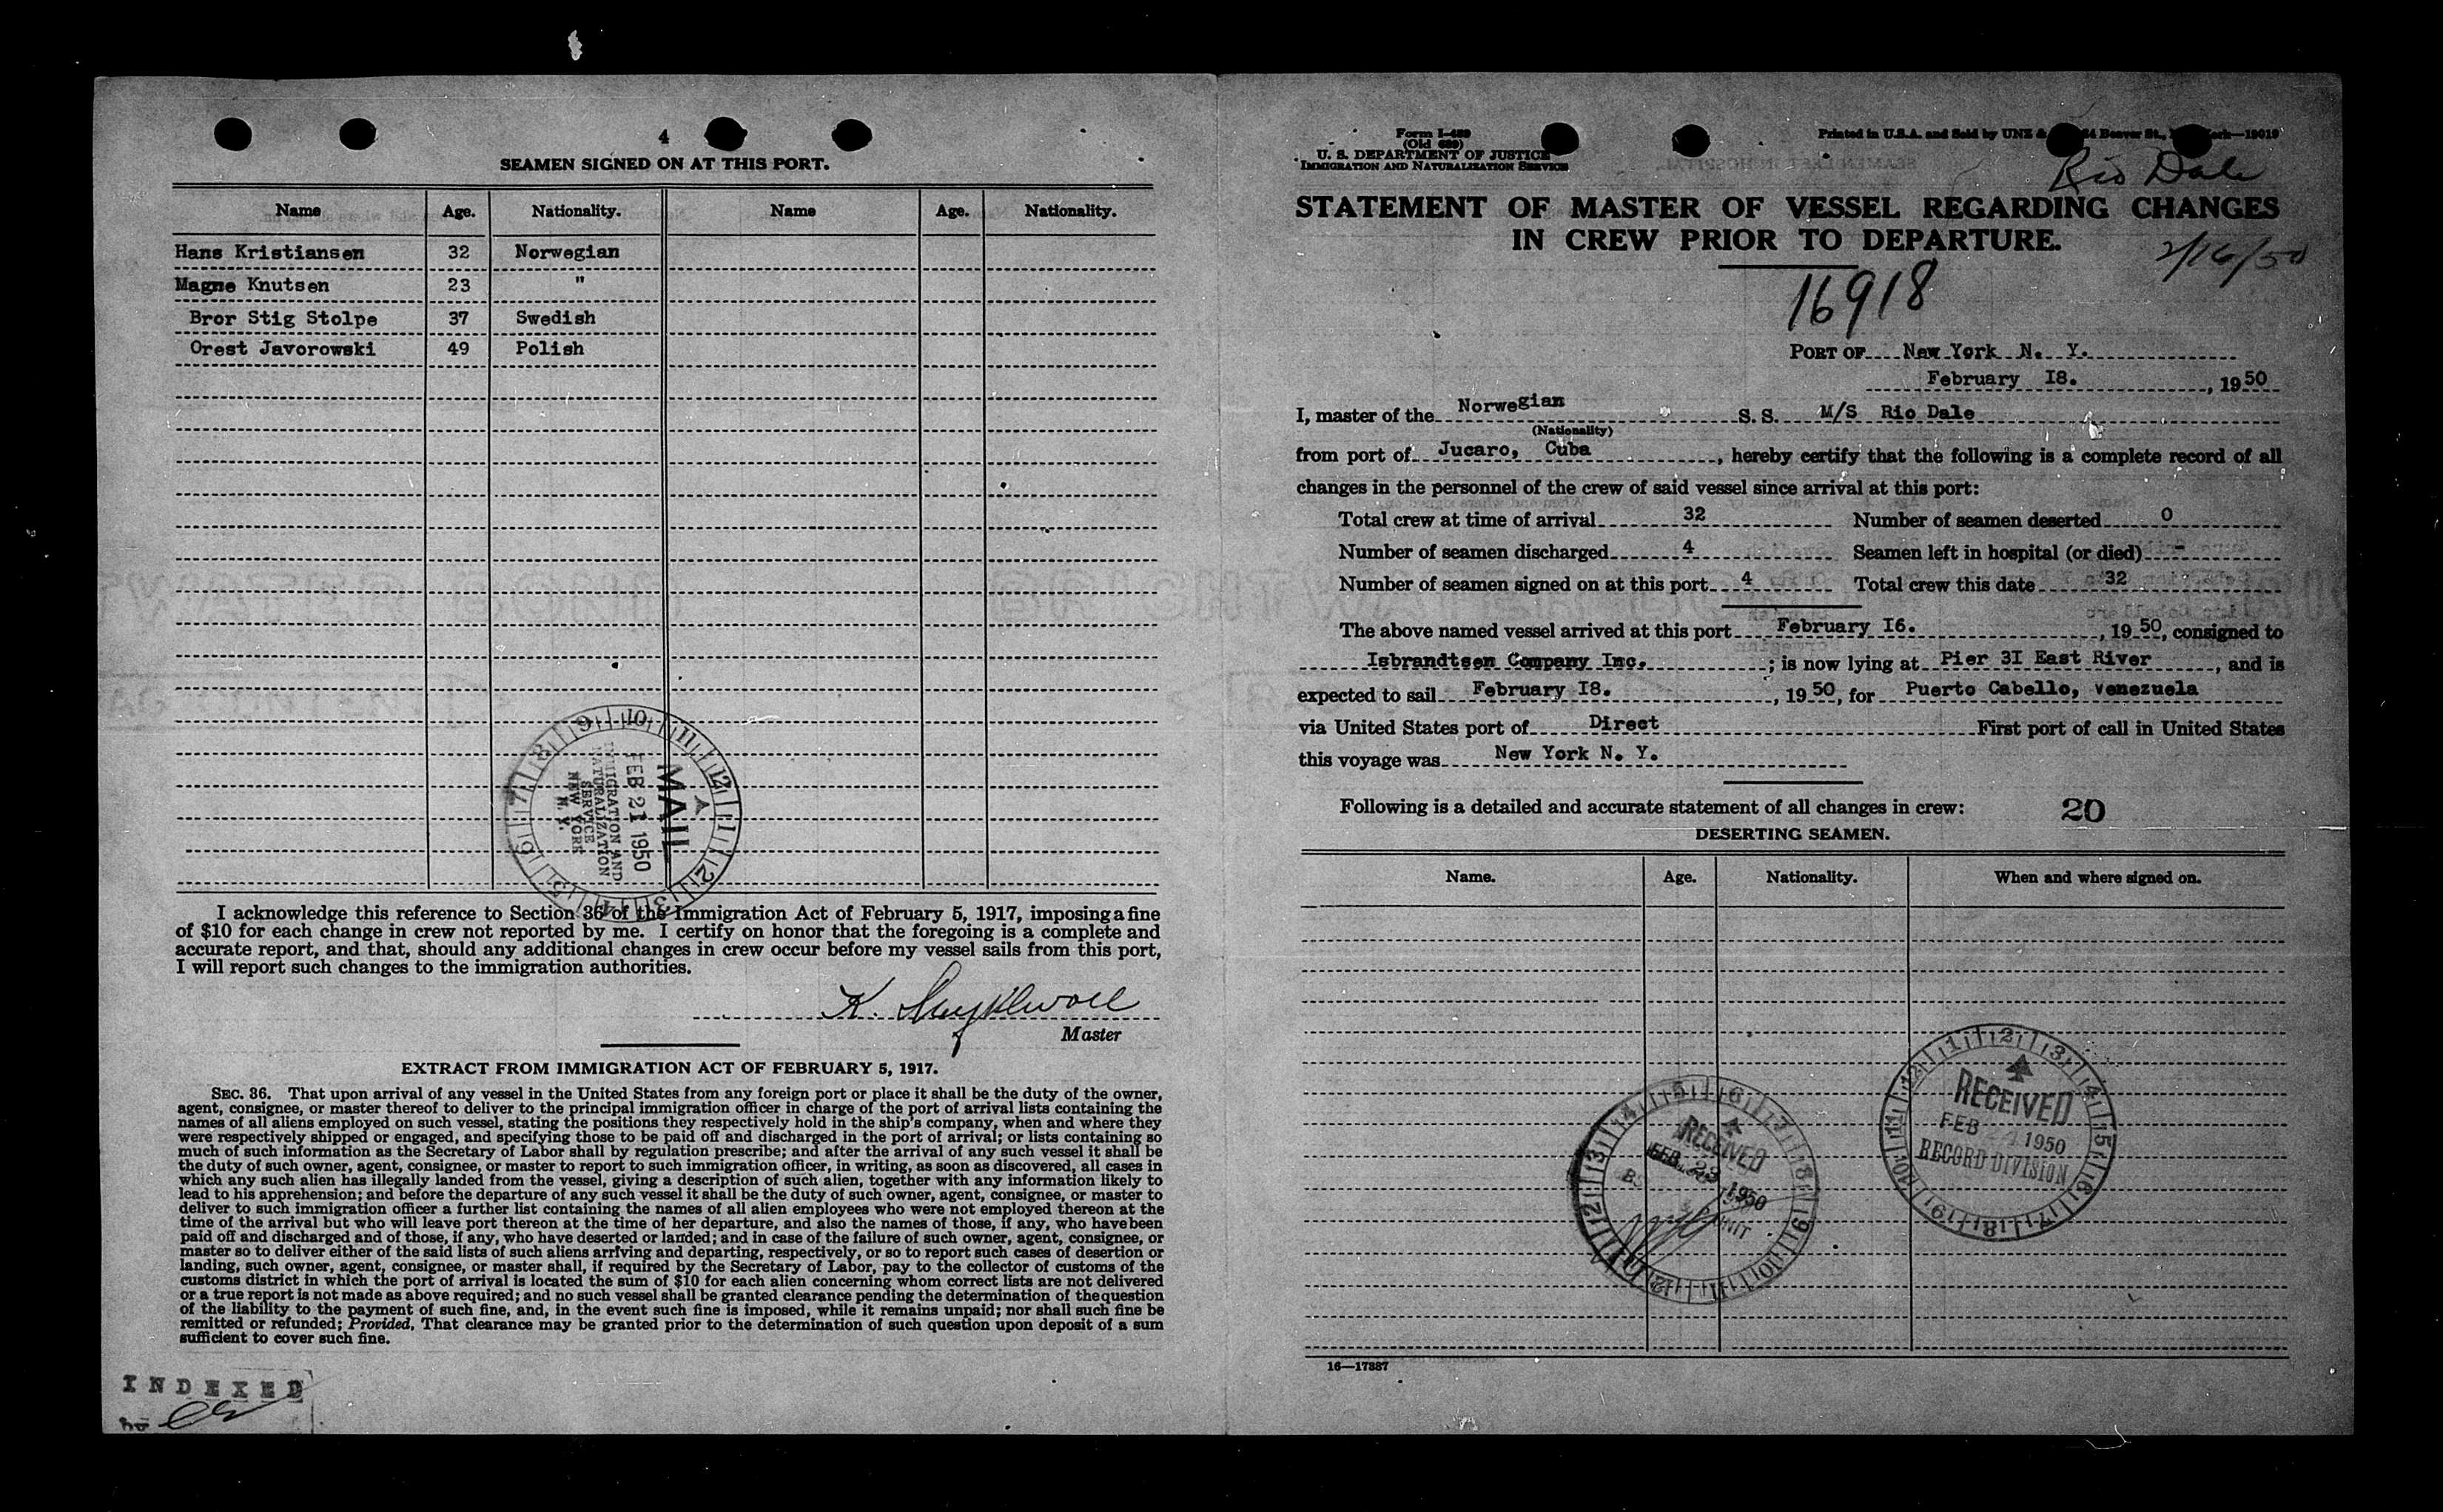 4
SEAMEN SIGNED ON AT THIS PORT.
Name Age. Nationality. Name Age. Nationality.
Hans Kristiansen 32 Norwegian
Magne Knutsen 23 "
Bror Stig Stolpe 37 Swedish
Orest Javorowski 49 Polish
MAIL
FEB 21 1950
IMMIGRATION AND
NATURALIZATION
SERVICE
NEW YORK
N. Y.
I acknowledge this reference to Section 36 of the Immigration Act of February 5, 1917, imposing a fine
of $10 for each change in crew not reported by me. I certify on honor that the foregoing is a complete and
accurate report, and that, should any additional changes in crew occur before my vessel sails from this port,
I will report such changes to the immigration authorities.
K.
Master
EXTRACT FROM IMMIGRATION ACT OF FEBRUARY 5, 1917.
SEC. 36. That upon arrival of any vessel in the United States from any foreign port or place it shall be the duty of the owner,
agent, consignee, or master thereof to deliver to the principal immigration officer in charge of the port of arrival lists containing the
names of all aliens employed on such vessel, stating the positions they respectively hold in the ship's company, when and where they
were respectively shipped or engaged, and specifying those to be paid off and discharged in the port of arrival; or lists containing so
much of such information as the Secretary of Labor shall by regulation prescribe; and after the arrival of any such vessel it shall be
the duty of such owner, agent, consignee, or master to report to such immigration officer, in writing, as soon as discovered, all cases in
which any such alien has illegally landed from the vessel, giving a description of such alien, together with any information likely to
lead to his apprehension; and before the departure of any such vessel it shall be the duty of such owner, agent, consignee, or master to
deliver to such immigration officer a further list containing the names of all alien employees who were not employed thereon at the
time of the arrival but who will leave port thereon at the time of her departure, and also the names of those, if any, who have been
paid off and discharged and of those, if any, who have deserted or landed; and in case of the failure of such owner, agent, consignee, or
master so to deliver either of the said lists of such aliens arriving and departing, respectively, or so to report such cases of desertion or
landing, such owner, agent, consignee, or master shall, if required by the Secretary of Labor, pay to the collector of customs of the
customs district in which the port of arrival is located the sum of $10 for each alien concerning whom correct lists are not delivered
or a true report is not made as above required; and no such vessel shall be granted clearance pending the determination of the question
of the liability to the payment of such fine, and, in the event such fine is imposed, while it remains unpaid; nor shall such fine be
remitted or refunded; Provided, That clearance may be granted prior to the determination of such question upon deposit of a sum
sufficient to cover such fine.
INDEXED
Form I-489
(Old 689)
U. S. DEPARTMENT OF JUSTICE
IMMIGRATION AND NATURALIZATION SERVICE
Printed in U.S.A. and Sold by UNZ & Beaver St., 19019
Rio Dale
STATEMENT OF MASTER OF VESSEL REGARDING CHANGES
IN CREW PRIOR TO DEPARTURE.
2/16/50
16918
PORT OF New York N. Y.
February I8. , 1950
I, master of the Norwegian S. S. M/S Rio Dale
(Nationality)
from port of Jucaro, Cuba , hereby certify that the following is a complete record of all
changes in the personnel of the crew of said vessel since arrival at this port:
Total crew at time of arrival 32 Number of seamen deserted 0
Number of seamen discharged 4 Seamen left in hospital (or died) -
Number of seamen signed on at this port 4 Total crew this date 32
The above named vessel arrived at this port February I6. , 1950, consigned to
Isbrandtsen Company Inc. ; is now lying at Pier 3I East River , and is
expected to sail February I8. , 1950, for Puerto Cabello, Venezuela
via United States port of Direct First port of call in United States
this voyage was New York N. Y.
Following is a detailed and accurate statement of all changes in crew: 20
DESERTING SEAMEN.
Name. Age. Nationality. When and where signed on.
RECEIVED
FEB 1950
RECORD DIVISION
RECEIVED
FEB 23 1950
UNIT
16—17887